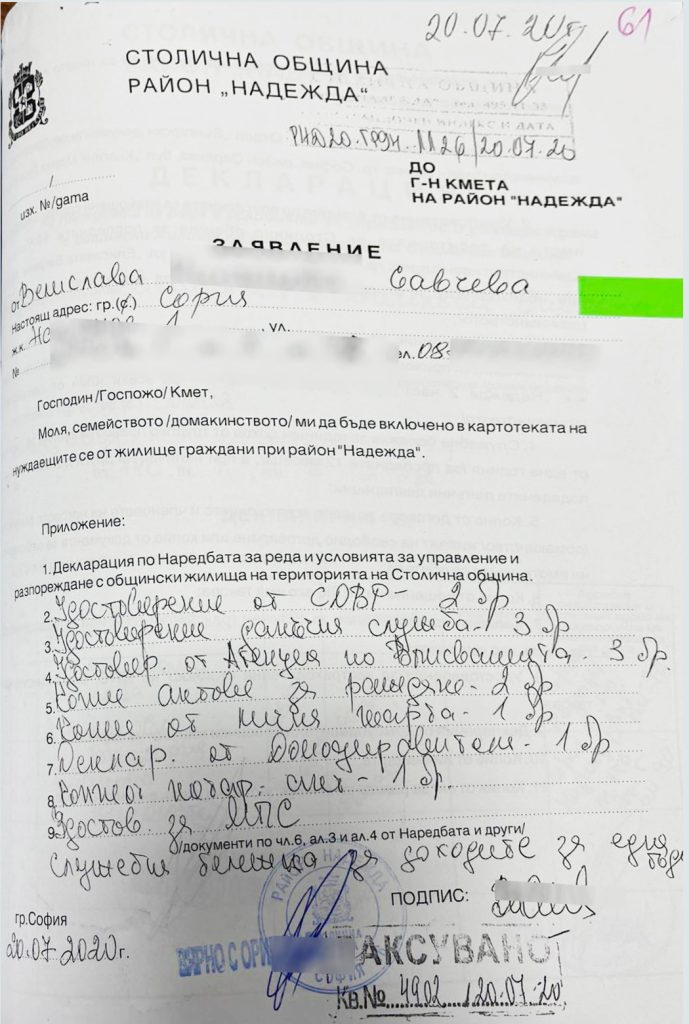 20.07.20
61
СТОЛИЧНА ОБЩИНА
РАЙОН „НАДЕЖДА“
РНД20-ГР94-1126/20.07.20
/
изх. №/дата
ДО
Г-Н КМЕТА
НА РАЙОН "НАДЕЖДА"
ЗАЯВЛЕНИЕ
от Велислава Савчева
Настоящ адрес: гр.(с.) София
ж.к. , ул.
№ ел. 08
Господин /Госпожо/ Кмет,
Моля, семейството /домакинството/ ми да бъде включено в картотеката на
нуждаещите се от жилище граждани при район "Надежда".
Приложение:
1. Декларация по Наредбата за реда и условията за управление и
разпореждане с общински жилища на територията на Столична община.
2. Удостоверение от СДВР - 2 бр
3. Удостоверение данъчна служба - 3 бр
4. Удостовер. от Агенция по Вписванията - 3 бр.
5. Копие актове за раждане - 2 бр
6. Копие от лична карта - 1 бр
7. Деклар. от Домоуправител - 1 бр
8. Копие от нотар. акт - 1 бр.
9. Удостов. за МПС
/документи по чл.6, ал.3 и ал.4 от Наредбата и други/
Служебна бележка за доходите за една год
ПОДПИС:
гр.София
20.07.2020г.
РАЙОН НАДЕЖДА
СОФИЯ
ВЯРНО С ОРИ
ТАКСУВАНО
Кв.№ 4902 /20.07.20